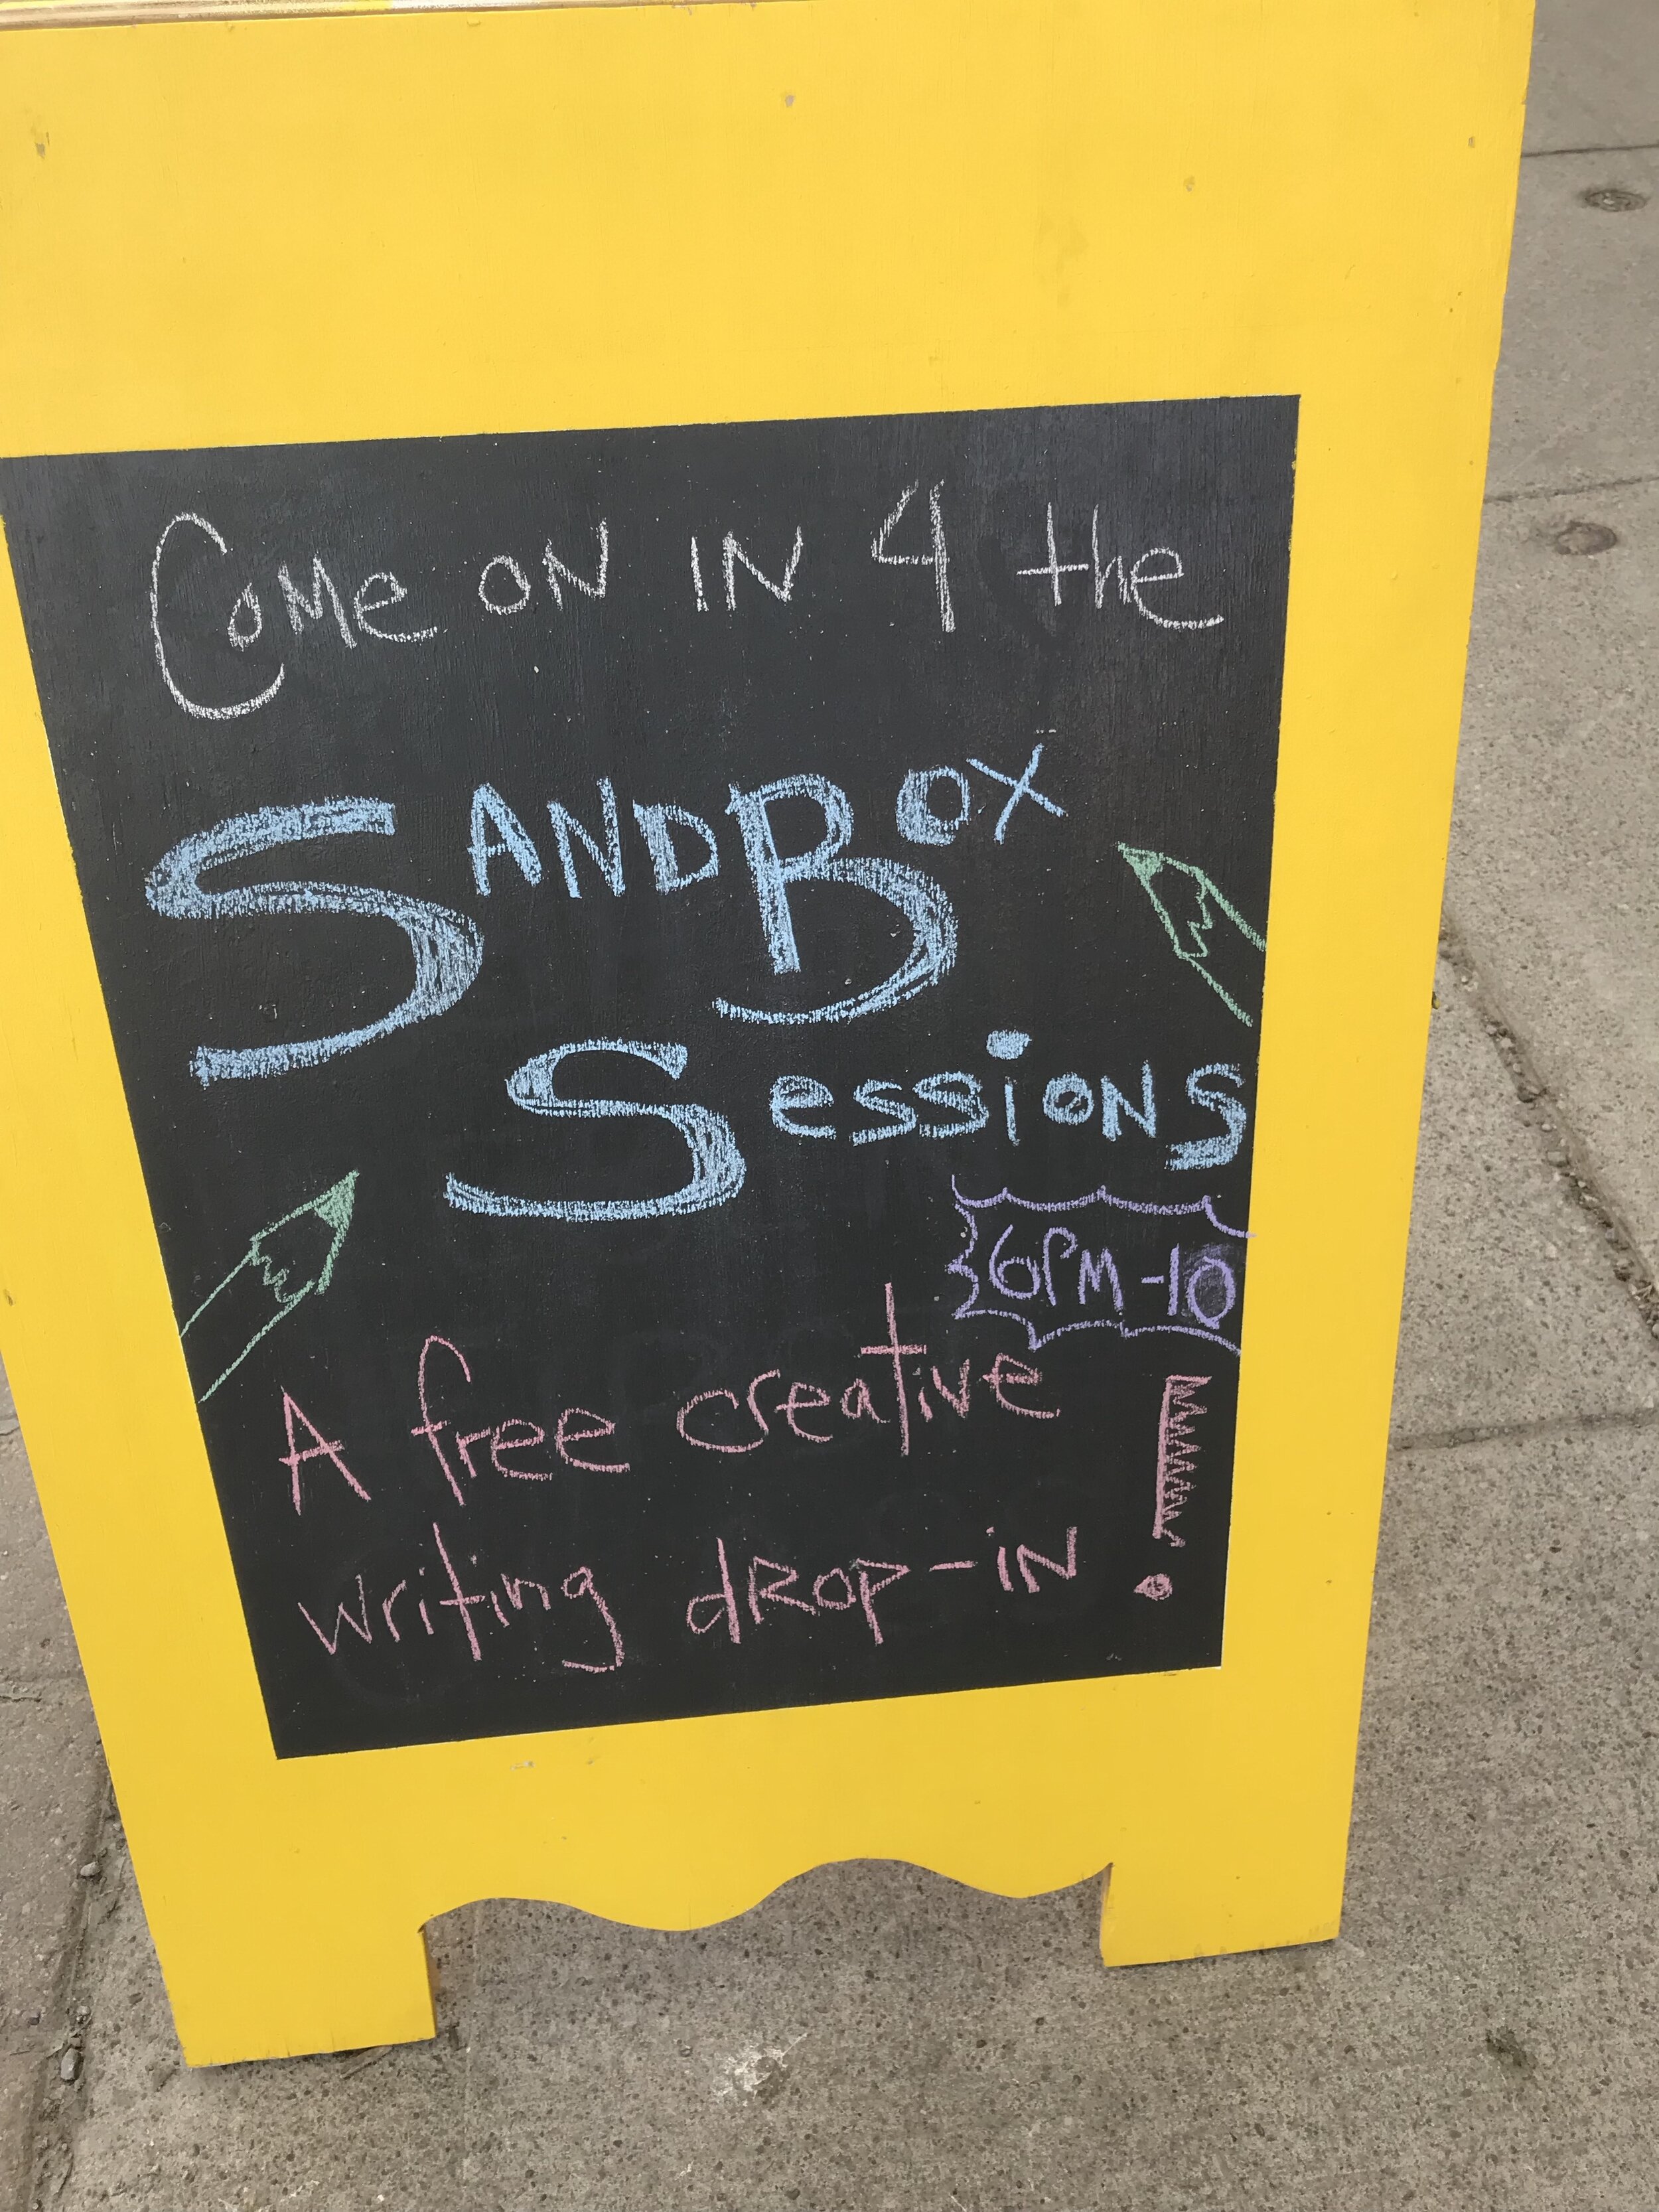 Come ON IN 4 the
SANDBOX
SessioNS
6PM-10
A free creative
writing dROP-iN !